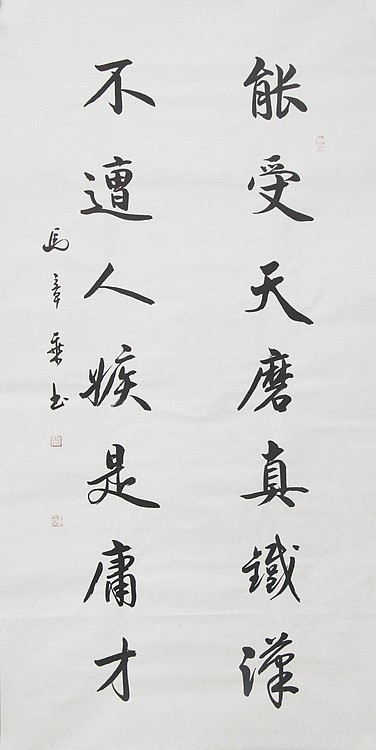 能受天磨真鐵漢
不遭人嫉是庸才
馬章乘书